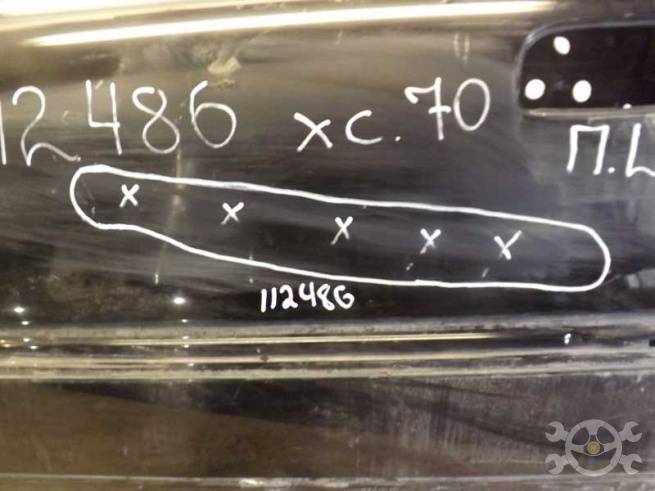 12486 хс.70
п.
x x x x x
112486